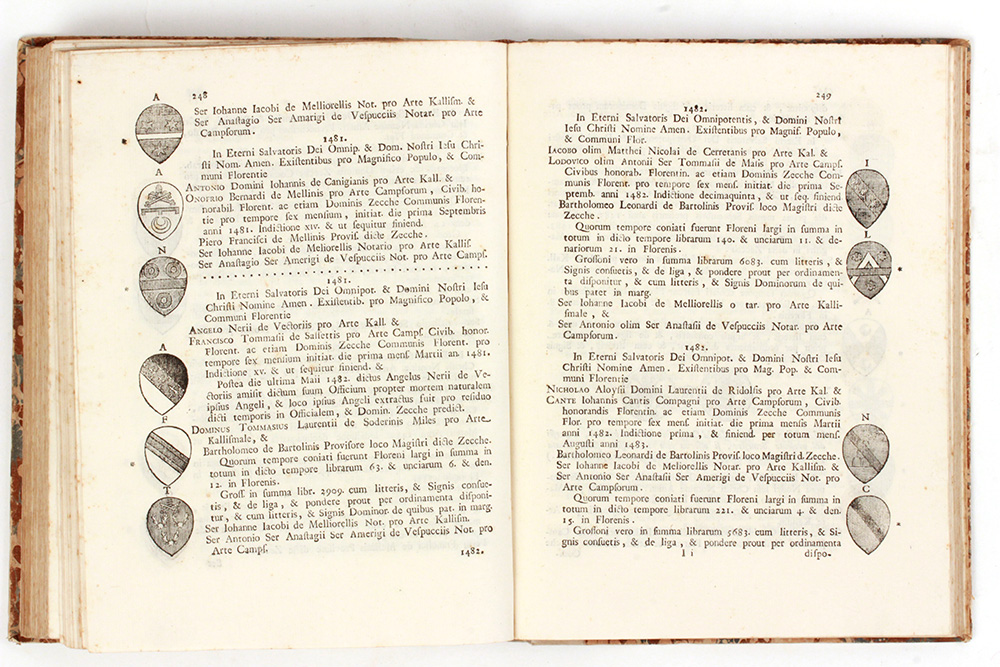 248
A
Ser Iohanne Iacobi de Melliorellis Not. pro Arte Kallism. &
Ser Anastagio Ser Amarigi de Vespucciis Notar. pro Arte
Campsorum.
1481.
In Eterni Salvatoris Dei Omnip. & Dom. Nostri Iesu Chri-
sti Nom. Amen. Existentibus pro Magnifico Populo, & Com-
muni Florentie
A
ANTONIO Domini Iohannis de Canigianis pro Arte Kall. &
ONOFRIO Bernardi de Mellinis pro Arte Campsorum, Civib. ho-
norabil. Florent. ac etiam Dominis Zecche Communis Floren-
tie pro tempore sex mensium, initiat. die prima Septembris
anni 1481. Indictione XIV. & ut sequitur finiend.
Piero Francisci de Mellinis Provis. dicte Zecche.
Ser Iohanne Iacobi de Meliorellis Notario pro Arte Kallis.
Ser Anastagio Ser Amerigi de Vespucciis Not. pro Arte Camps.
N
1481.
In Eterni Salvatoris Dei Omnipot. & Domini Nostri Iesu
Christi Nomine Amen. Existentib. pro Magnifico Popolo, &
Communi Florentie
ANGELO Nerii de Vectoriis pro Arte Kall. &
FRANCISCO Tommasii de Sassettis pro Arte Camps. Civib. honor.
Florent. ac etiam Dominis Zecche Communis Florent. pro
tempore sex mensium initiat. die prima mensis Martii an. 1481.
Indictione XV. & ut sequitur finiend. &
A
Postea die ultima Maii 1482. dictus Angelus Nerii de Ve-
ctoriis amisit dictum suum Officium propter mortem naturalem
ipsius Angeli, & loco ipsius Angeli extractus fuit pro residuo
dicti temporis in Officialem, & Domin. Zecche predict.
F
DOMINUS TOMMASIUS Laurentii de Soderinis Miles pro Arte
Kallismale, &
Bartholomeo de Bartolinis Provisore loco Magistri dicte Zecche.
Quorum tempore coniati fuerunt Floreni largi in summa in
totum in dicto tempore librarum 63. & unciarum 6. & den.
12. in Florenis.
T
Gross. in summa libr. 2909. cum litteris, & Signis consue-
tis, & de liga, & pondere prout per ordinamenta disponi-
tur, & cum litteris, & Signis Dominor. de quibus pat. in marg.
Ser Iohanne Iacobi de Meliorellis Not. pro Arte Kallism.
Ser Antonio Ser Anastagii Ser Amerigi de Vespucciis Not. pro
Arte Camps.
1482.
249
1482.
In Eterni Salvatoris Dei Omnipotentis, & Domini Nostri
Iesu Christi Nomine Amen. Existentibus pro Magnif. Populo,
& Communi Flor.
IACOBO olim Matthei Nicolai de Cerretanis pro Arte Kal. &
LODOVICO olim Antonii Ser Tommasii de Masis pro Arte Camps.
Civibus honorab. Florentin. ac etiam Dominis Zecche Com-
munis Florent. pro tempore sex mens. initiat. die prima Se-
ptemb. anni 1482. Indictione decimaquinta, & ut seq. finiend
Bartholomeo Leonardi de Bartolinis Provis. loco Magistri dicte
Zecche.
I
Quorum tempore coniati fuerunt Floreni largi in summa in
totum in dicto tempore librarum 140. & unciarum 11. & de-
nariorum 21. in Florenis.
L
Grossoni vero in summa librarum 6083. cum litteris, &
Signis consuetis, & de liga, & pondere prout per ordinamen-
ta disponitur, & cum litteris, & Signis Dominorum de qui-
bus patet in marg.
Ser Iohanne Iacobi de Melliorellis o tar. pro Arte Kalli-
smale, &
Ser Antonio olim Ser Anastasii de Vespucciis Notar. pro Arte
Campsorum.
1482.
In Eterni Salvatoris Dei Omnipot. & Domini Nostri Iesu
Christi Nomine Amen. Existentibus pro Mag. Pop. & Com-
muni Florentie
NICHOLAO Aloysii Domini Laurentii de Ridolfis pro Arte Kal. &
CANTE Iohannis Cantis Compagni pro Arte Campsorum, Civib.
honorandis Florentin. ac etiam Dominis Zecche Communis
Flor. pro tempore sex mens. initiat. die prima mensis Martii
anni 1482. Indictione prima, & finiend. per totum mens.
Augusti anni 1483.
N
Bartholomeo Leonardi de Bartolinis Provis. loco Magistri d. Zecche.
Ser Iohanne Iacobi de Meliorellis Not. pro Arte Kallism. &
Ser Antonio Ser Anastasii Ser Amerigi de Vespucciis Not. pro
Arte Campsorum.
C
Quorum tempore coniati fuerunt Floreni largi in summa in
totum in dicto tempore librarum 221. & unciarum 4. & den.
15. in Florenis.
Grossoni vero in summa librarum 5683. cum litteris, & Si-
gnis consuetis, & de liga, & pondere prout per ordinamenta
I i
dispo-